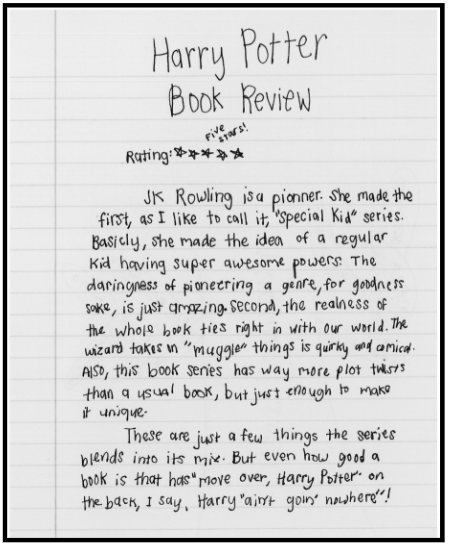 Harry Potter
Book Review
Five
stars!
Rating: ☆☆☆☆☆
JK Rowling is a pionner. She made the
first, as I like to call it, "Special Kid" series.
Basicly, she made the idea of a regular
kid having super awesome powers. The
daringness of pioneering a genre, for goodness
sake, is just amazing. Second, the realness of
the whole book ties right in with our world. The
wizard takes on "muggle" things is quirky and comical.
Also, this book series has way more plot twists
than a usual book, but just enough to make
it unique.
These are just a few things the series
blends into its mix. But even how good a
book is that has "move over, Harry Potter" on
the back, I say, Harry "ain't goin' nowhere"!